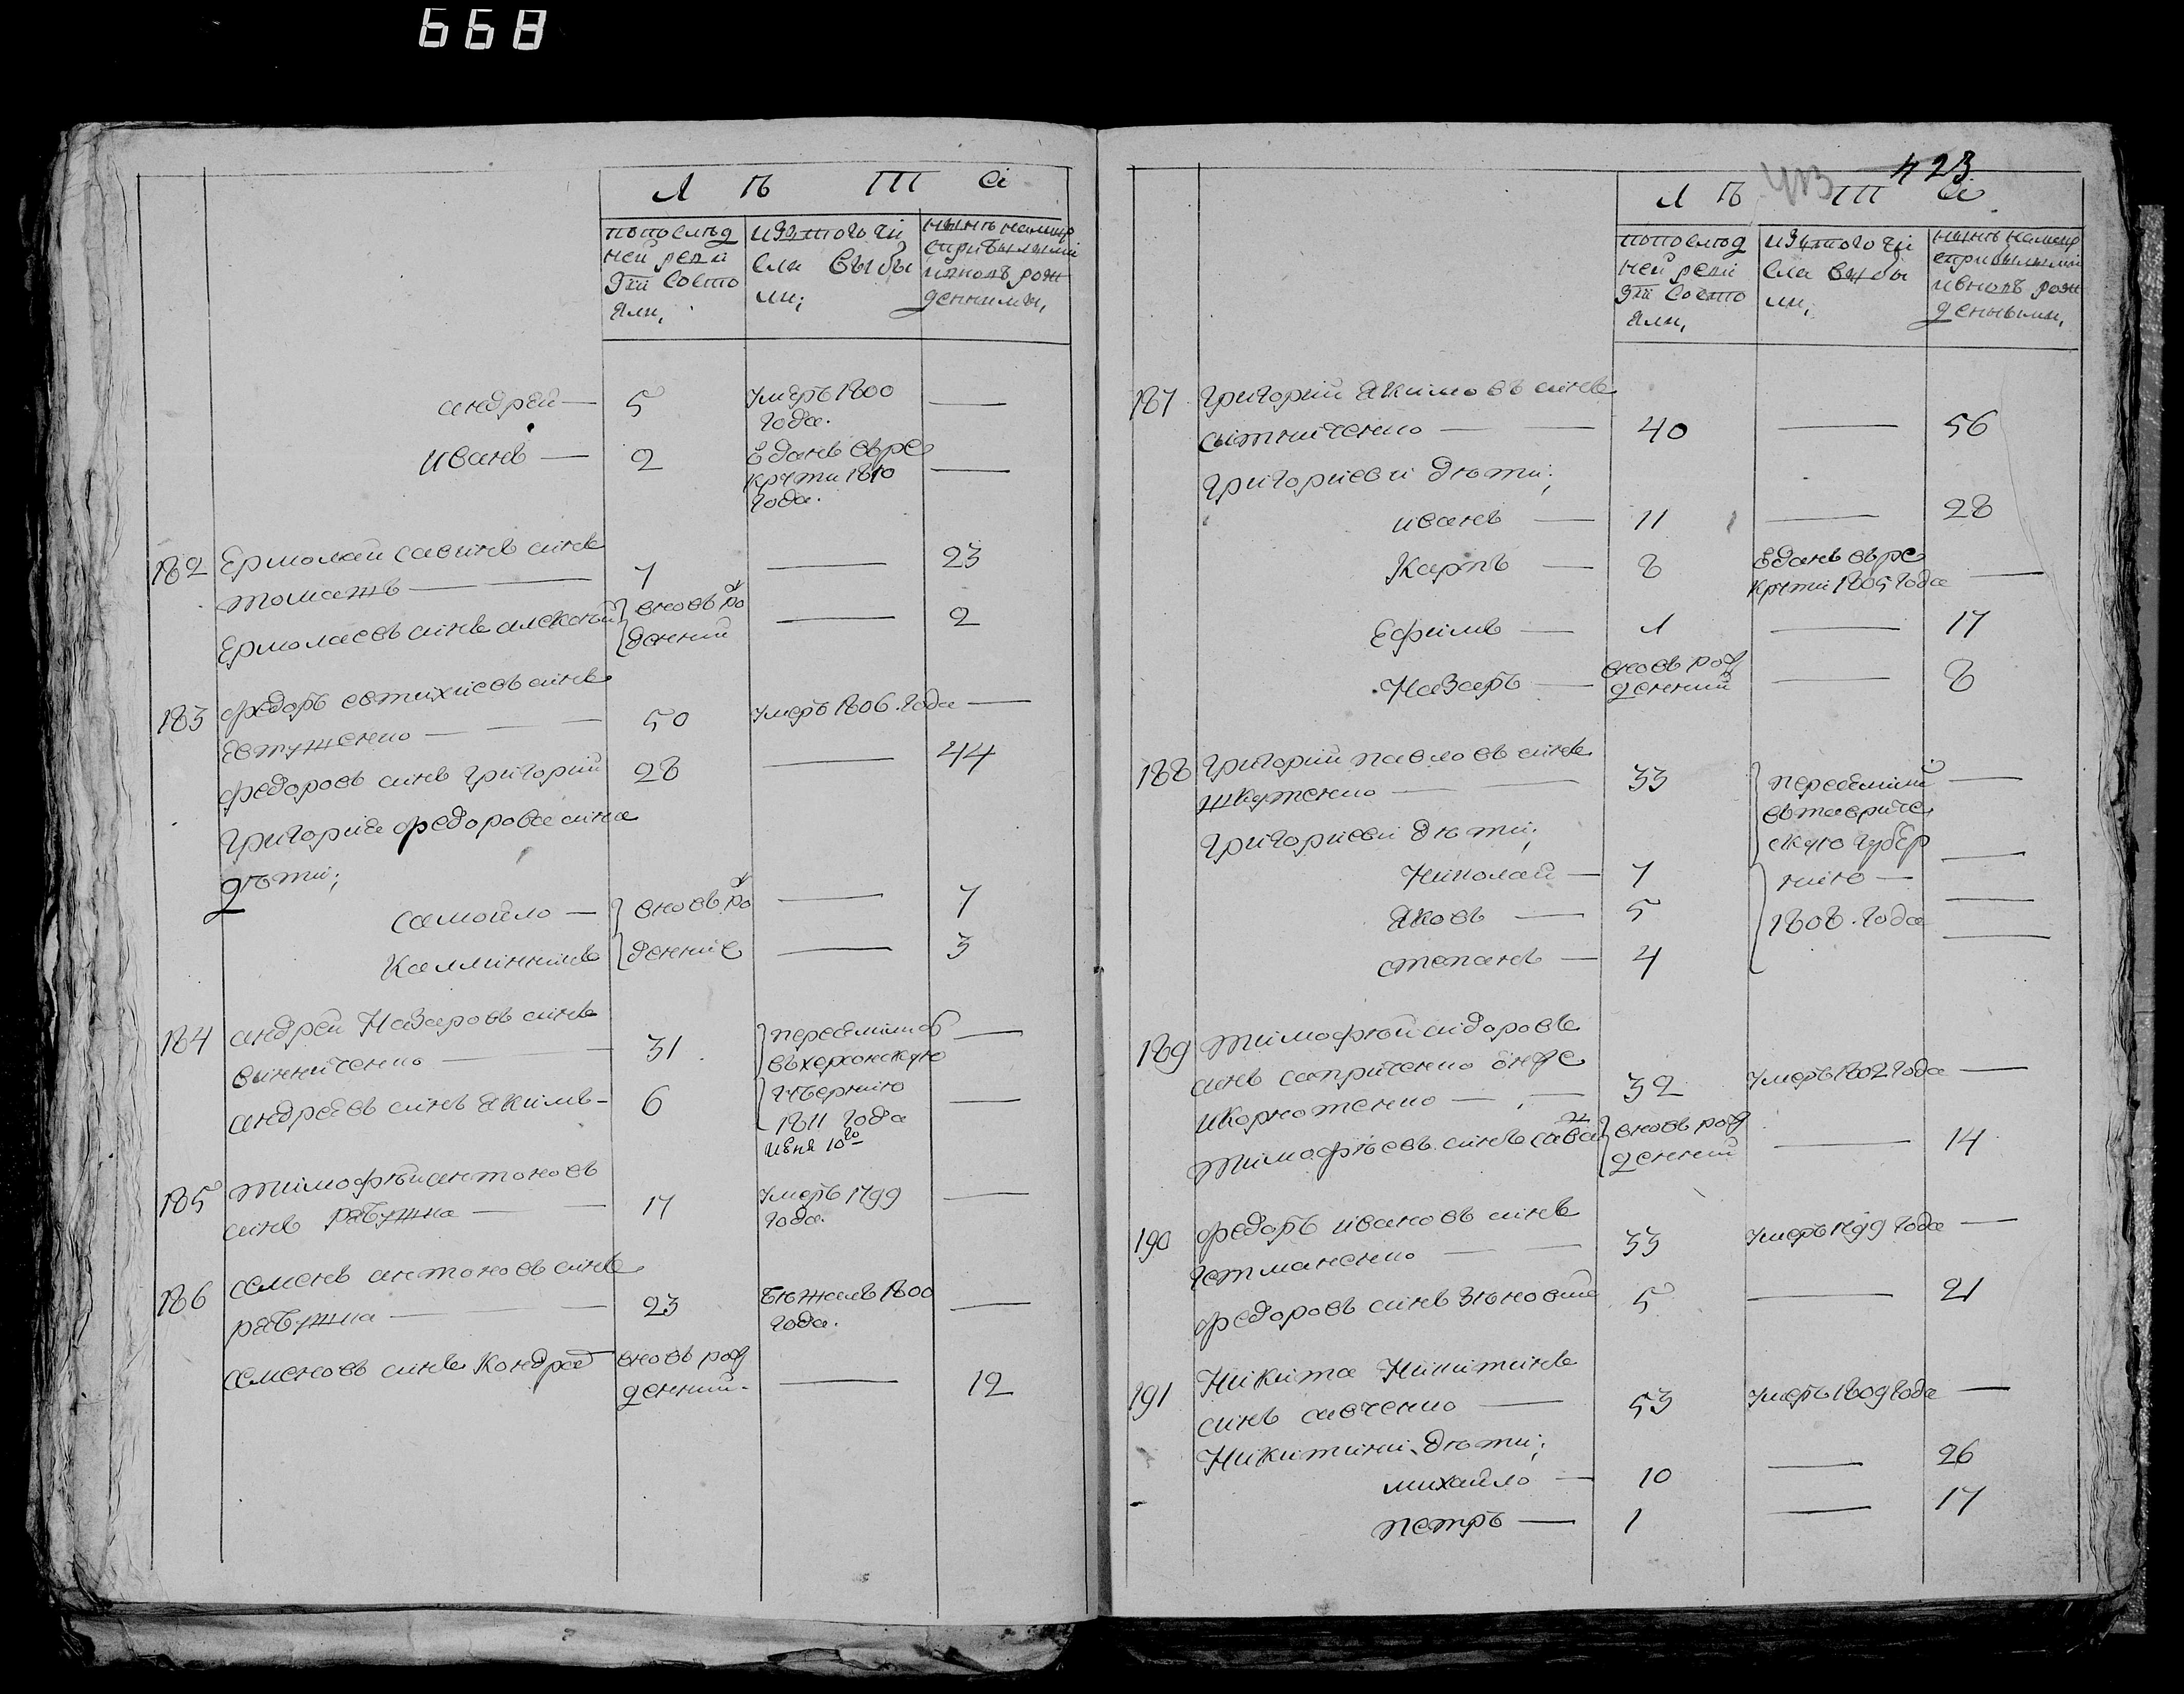 668
Л Ѣ Т а
попослѣд
ней реви
зіи Состо
яли,
изътого чи
сла выбы
ли,
нынѣ налицо
сприбылыми
ивновь рож
денными,
андрей — 5 умеръ 1800 —
года.
иванъ — 2 ѿданъ врѣ —
крути 1810
года.
182 Ермолай савинъ синъ
томашъ — 7 — 23
Ермолаевъ синъ алексей вновь ро — 2
денний
183 федоръ евтихиевъ синъ
Евтушенко — 50 умеръ 1806. года —
федоровъ синъ григорий 28 — 44
григория федорова сина
дѣти;
самойло — вновь ро — 7
Каллинникъ денние — 3
184 андрей Назаровъ синъ
винниченко — 31 переселился —
въ херсонскую
андреевъ синъ якимъ - 6 губернию —
1811 года
июня 10го
185 тимофѣй антоновъ
синъ рябушка — 17 умеръ 1799 —
года.
186 семенъ антоновъ синъ
рябушка — 23 бѣжалъ 1800 —
года.
семеновъ синъ Кондрат вновь рож — 12
денний
423
Л Ѣ Т а
попослѣд
ней реви
зіи Состо
яли,
изътого чи
сла выбы
ли,
нынѣ налицо
сприбылыми
ивновь рож
денными,
187 григорий якимовъ синъ
ситниченко — 40 — 56
григориеви дѣти;
иванъ — 11 — 28
Карпъ — 8 ѿданъ врѣ
крути 1805 года —
Ефимъ — 1 — 17
Назаръ — вновь рож — 8
денний
188 григорий павловъ синъ
шкутенко — 33 переселини —
григориеви дѣти; втавриче
скую губер
Николай — 7 нию — —
яковъ — 5 1808. года —
степанъ — 4 —
189 тимофѣй сидоровъ
синъ саприченко онже
икорнотенко — 32 умеръ 1802 года —
тимофѣевъ синъ сава вновь рож — 14
денний
190 федоръ ивановъ синъ
гетманенко — 33 умеръ 1799 года —
федоровъ синъ зѣновий 5 — 21
191 Никита Никитинъ
синъ савченко — 53 умеръ 1809 года —
Никитини дѣти;
михайло — 10 — 26
петръ — 1 — 17